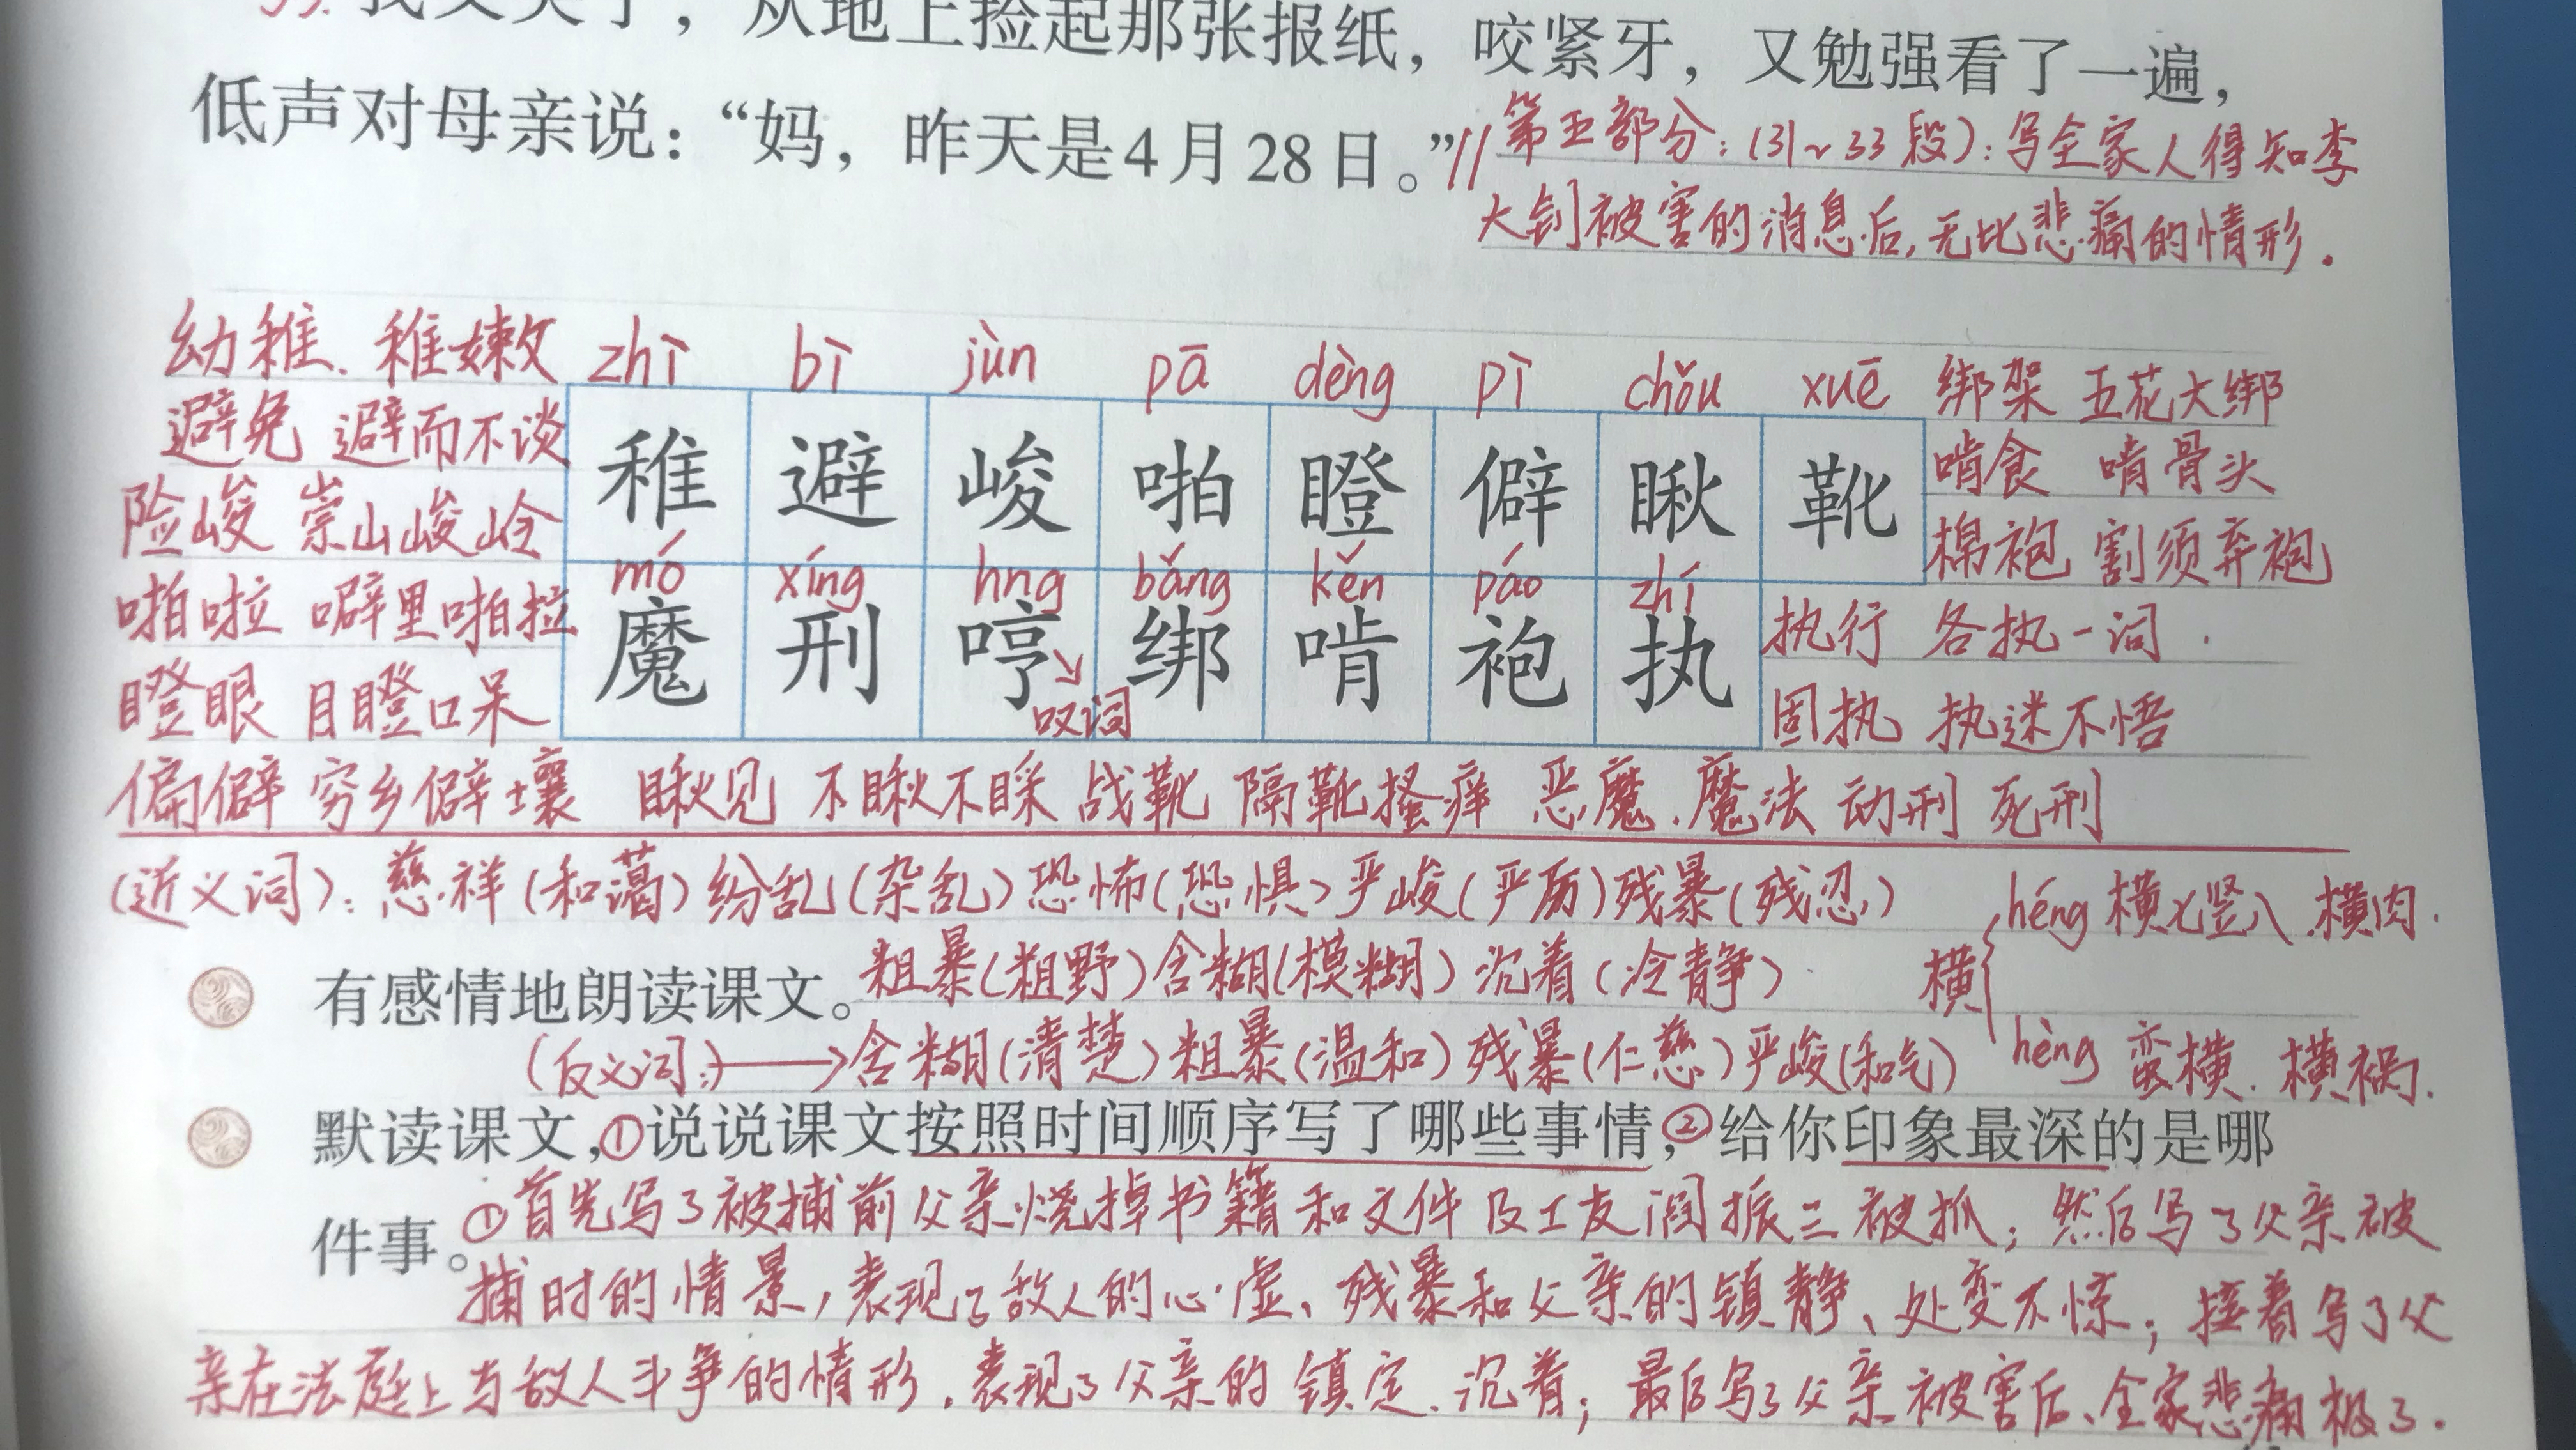 33. 我又哭了，从地上捡起那张报纸，咬紧牙，又勉强看了一遍，
低声对母亲说：“妈，昨天是4月28日。”
//第五部分：(31~33段)：写全家人得知李
大钊被害的消息后，无比悲痛的情形．
幼稚、稚嫩 zhì bì jùn pā dèng pì chǒu xuē 绑架 五花大绑
避免 避而不谈 稚 避 峻 啪 瞪 僻 瞅 靴 啃食 啃骨头
险峻 崇山峻岭 棉袍 割须弃袍
啪啦 噼里啪拉 mó xíng hng bǎng kěn páo zhí 执行 各执一词．
瞪眼 目瞪口呆 魔 刑 哼 绑 啃 袍 执 固执 执迷不悟
叹词
偏僻 穷乡僻壤 瞅见 不瞅不睬 战靴 隔靴搔痒 恶魔、魔法 动刑 死刑
(近义词)：慈祥(和蔼)纷乱(杂乱)恐怖(恐惧)严峻(严厉)残暴(残忍)
héng 横七竖八．横肉．
有感情地朗读课文。粗暴(粗野)含糊(模糊)沉着(冷静) 横
(反义词：)→含糊(清楚)粗暴(温和)残暴(仁慈)严峻(和气) hèng 蛮横．横祸．
默读课文，①说说课文按照时间顺序写了哪些事情，②给你印象最深的是哪
件事。①首先写了被捕前父亲烧掉书籍和文件及工友阎振三被抓；然后写了父亲被
捕时的情景，表现了敌人的心虚、残暴和父亲的镇静、处变不惊；接着写了父
亲在法庭上与敌人斗争的情形，表现了父亲的镇定、沉着；最后写了父亲被害后、全家悲痛极了．